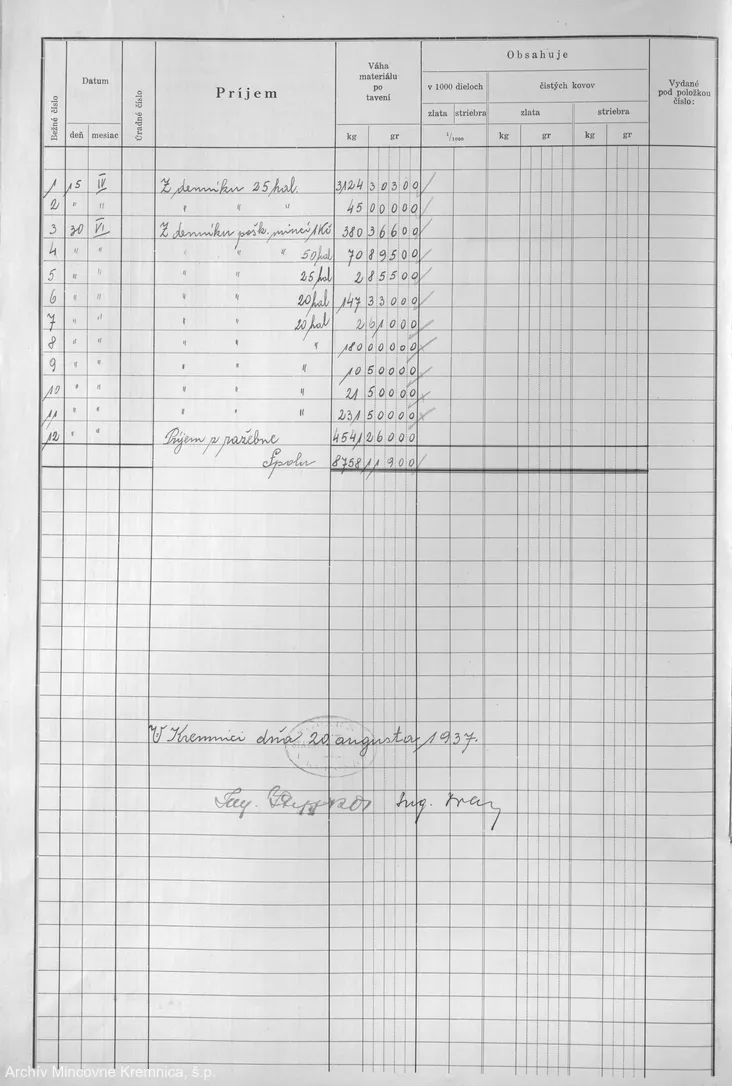 Bežné číslo
Datum
deň mesiac
Úradné číslo
Príjem
Váha
materiálu
po
tavení
kg gr
Obsahuje
v 1000 dieloch čistých kovov
zlata striebra zlata striebra
1/1000 kg gr kg gr
Vydané
pod položkou
číslo:
1 15 IV Z denníku 25 hal. 3124 30300
2 " " " " " 45 00000
3 30 VI Z denníku pošk. mincí 1 Kč 380 36600
4 " " " " " 50 hal 70 89500
5 " " " " 25 hal 2 85500
6 " " " " 20 hal 147 33000
7 " " " " 20 hal 2 61000
8 " " " " " 180 00000
9 " " " " " 10 50000
10 " " " " " 21 50000
11 " " " " " 231 50000
12 " " Príjem z pražebne 4541 26000
Spolu 8758 11900
V Kremnici dňa 20 augusta 1937.
Ing. Ing.
Archív Mincovne Kremnica, š.p.